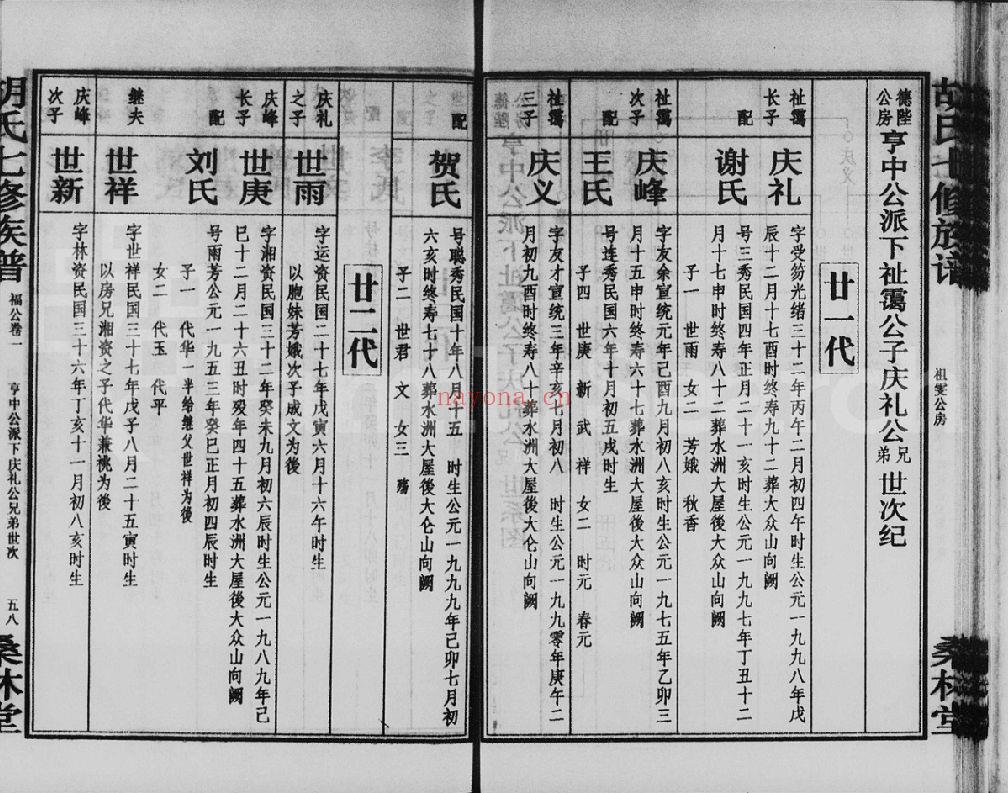 胡氏七修族谱
祖雯公房
桑林堂
德陛公房 亨中公派下祉霭公子庆礼公兄弟世次纪
廿一代
祉霭长子 庆礼 字受纷光绪三十二年丙午二月初四午时生公元一九九八年戊
辰十二月十七酉时终寿九十二葬大众山向阙
配 谢氏 号三秀民国四年正月二十一亥时生公元一九九七年丁丑十二
月十七申时终寿八十二葬水洲大屋後大众山向阙
子一 世雨 女二 芳娥 秋香
祉霭次子 庆峰 字友余宣统元年己酉九月初八亥时生公元一九七五年乙卯三
月十五申时终寿六十七葬水洲大屋後大众山向阙
配 王氏 号连秀民国六年十月初五戌时生
子四 世庚 新 武 祥 女二 时元 春元
祉霭三子 庆义 字友才宣统三年辛亥七月初八 时生公元一九九零年庚午二
月初九酉时终寿八十 葬水洲大屋後大仑山向阙
配 贺氏 号聪秀民国十年八月十五 时生公元一九九九年己卯七月初
六亥时终寿七十八葬水洲大屋後大仑山向阙
子二 世君 文 女三 殇
廿二代
庆礼之子 世雨 字运资民国二十七年戊寅六月十六午时生
以胞妹芳娥次子成文为後
庆峰长子 世庚 字湘资民国三十二年癸未九月初六辰时生公元一九八九年己
巳十二月二十六丑时殁年四十五葬水洲大屋後大众山向阙
配 刘氏 号雨芳公元一九五三年癸巳正月初四辰时生
子一 代华一半给继父世祥为後
女二 代玉 代平
继夫 世祥 字世祥民国三十七年戊子八月二十五寅时生
以房兄湘资之子代华兼祧为後
庆峰次子 世新 字林资民国三十六年丁亥十一月初八亥时生
胡氏七修族谱
福公卷一
亨中公派下庆礼公兄弟世次
五八
桑林堂
nayona.cn